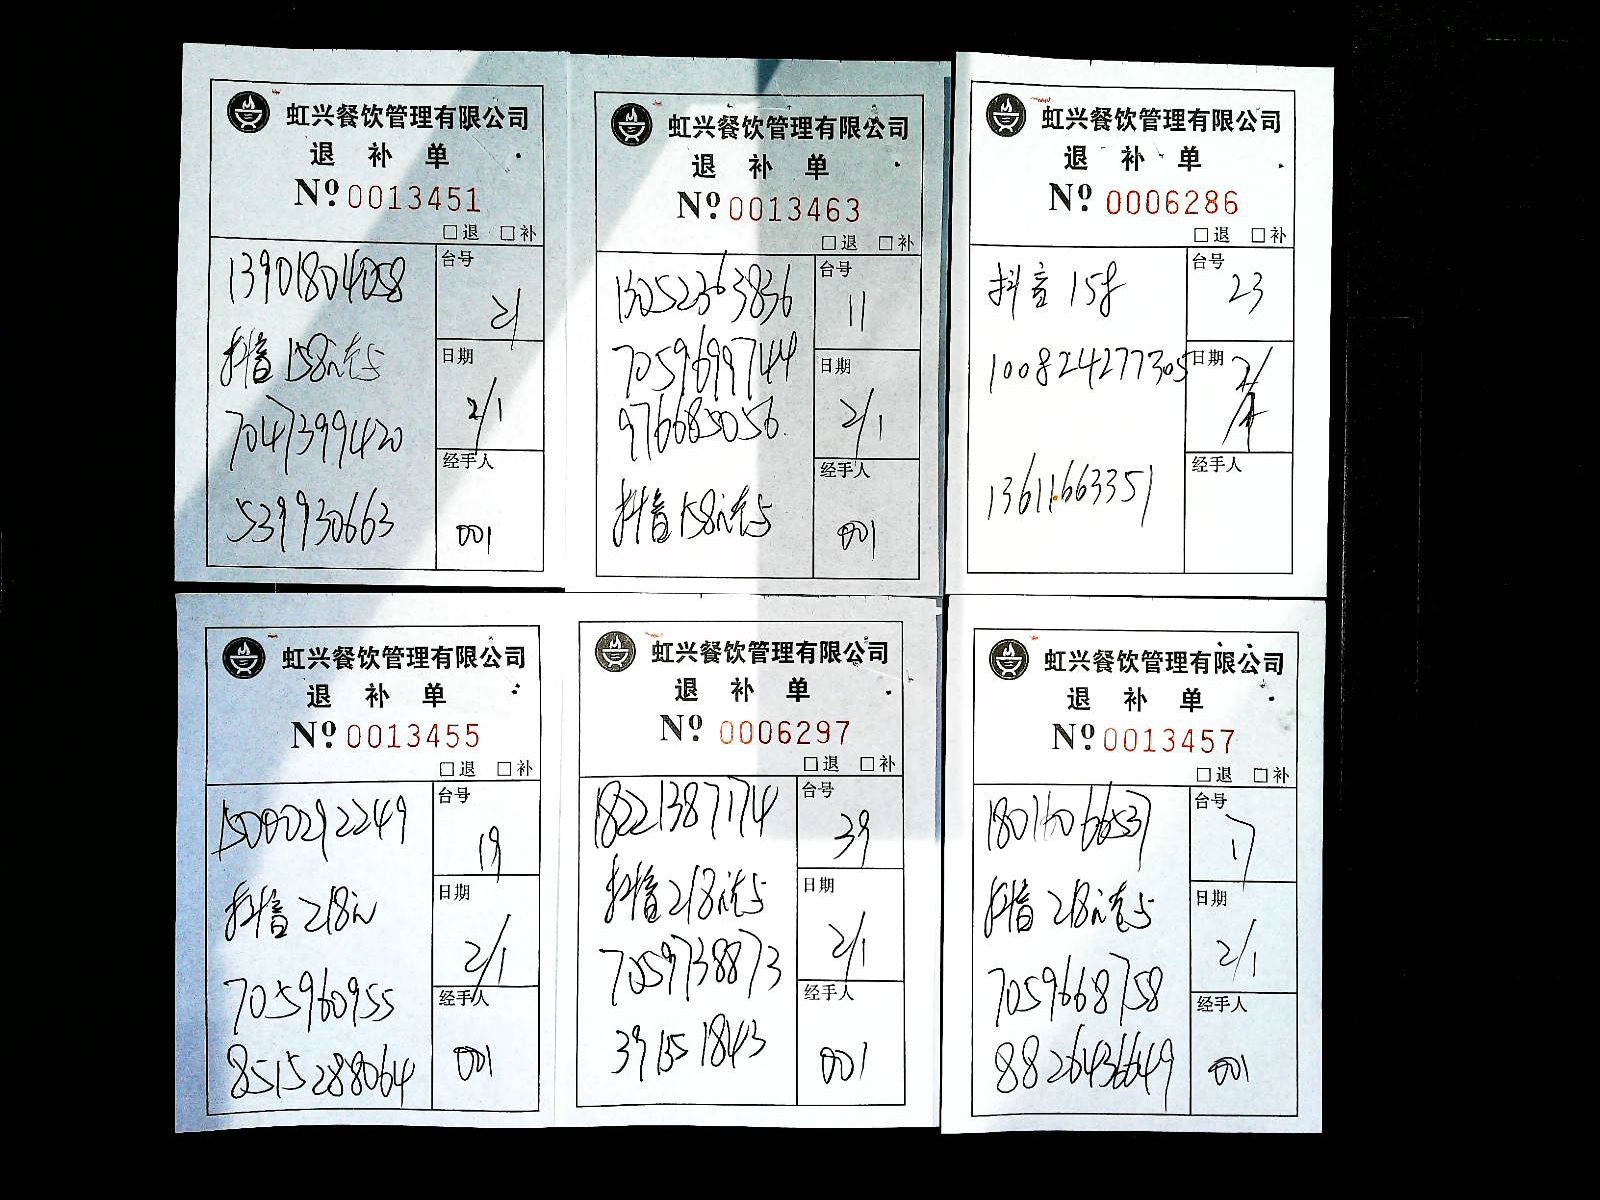 虹兴餐饮管理有限公司
退 补 单
Nº 0013451
□退 □补
13901804058
抖音158元充5
7047399420
539930663
台号
21
日期
2/1
经手人
001
虹兴餐饮管理有限公司
退 补 单
Nº 0013463
□退 □补
13052363836
7059699744
976685056
抖音158元充5
台号
11
日期
2/1
经手人
001
虹兴餐饮管理有限公司
退 补 单
Nº 0006286
□退 □补
抖音 158
100824277305
13611663351
台号
23
日期
经手人
虹兴餐饮管理有限公司
退 补 单
Nº 0013455
□退 □补
15000292249
抖音218元
705960955
8515288064
台号
19
日期
2/1
经手人
001
虹兴餐饮管理有限公司
退 补 单
Nº 0006297
□退 □补
18221387174
抖音218元充5
7059738873
391551843
台号
39
日期
2/1
经手人
001
虹兴餐饮管理有限公司
退 补 单
Nº 0013457
□退 □补
18016066537
抖音218元充5
7059668758
8826436649
台号
17
日期
2/1
经手人
001